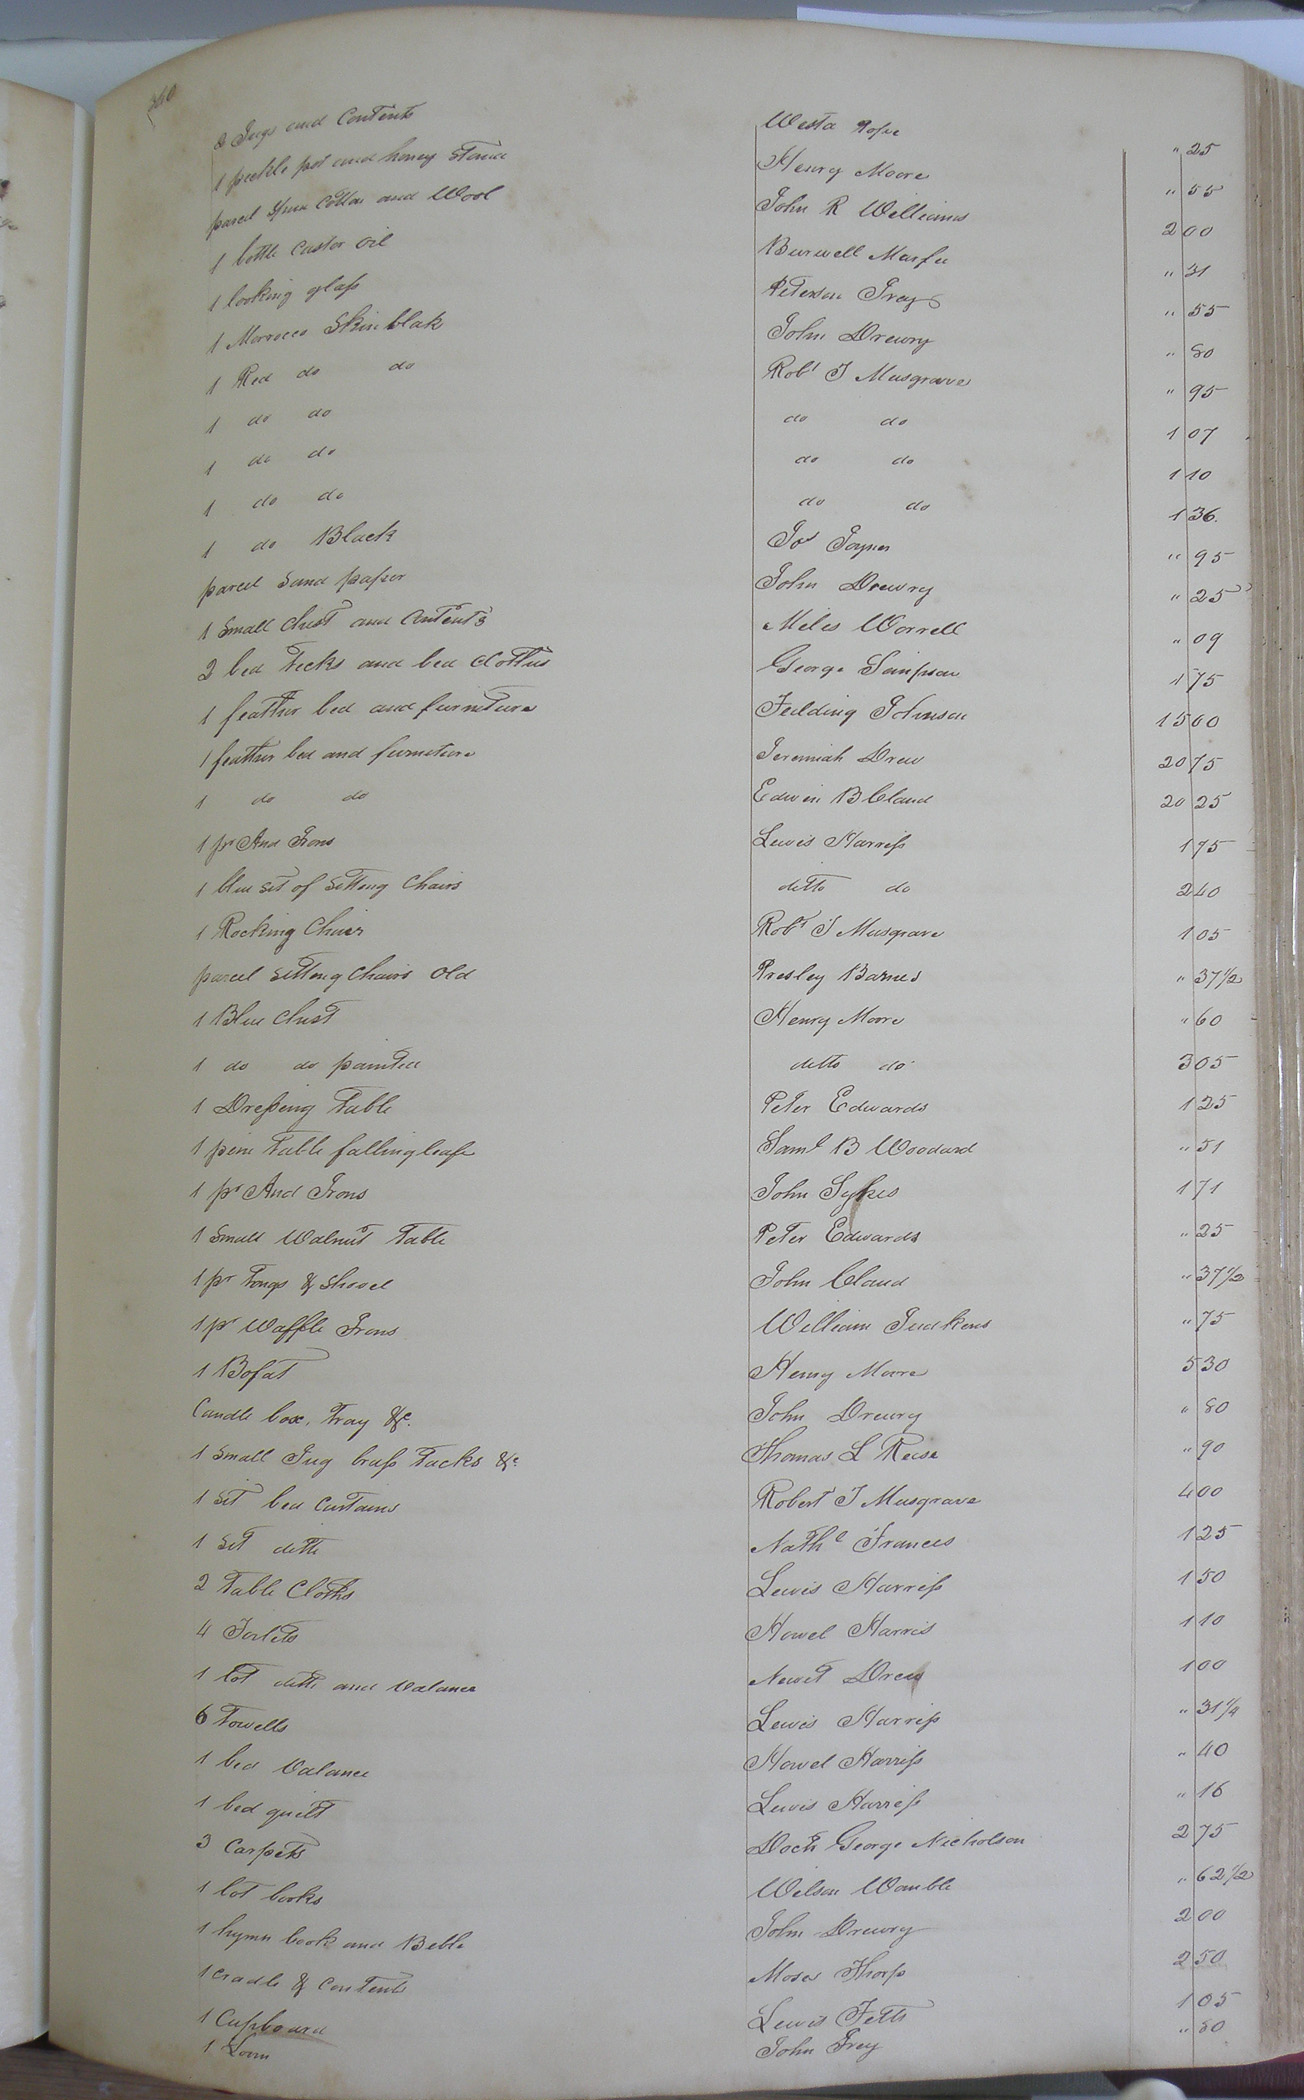 360
2 Jugs and Contents Westa Pope " 25
1 pickle pot and honey Stand Henry Moore " 55
parcel Spun Cotton and Wool John R Williams 2 00
1 bottle Castor Oil Burwell " 31
1 looking glass Peterson " 55
1 Morrocco Skin blak John Drewry " 80
1 Red do do Robt J Musgrave " 95
1 do do do do 1 07
1 do do do do 1 10
1 do do do do 1 36.
1 do Black Jos Joyner " 95
parcel Sand paper John Drewry " 25
1 Small Chest and Contents Miles Worrell " 09
2 bed ticks and bed Clothes George Simpson 1 75
1 feather bed and furniture Feilding Johnson 15 00
1 feather bed and furniture Jeremiah Drew 20 75
1 do do Edwin B Claud 20 25
1 pr And Irons Lewis Harriss 1 75
1 blue Set of Sitting Chairs ditto do 2 40
1 Rocking Chair Robt J Musgrave 1 05
parcel Sitting Chairs Old Presley Barnes " 37 1/2
1 Blue Chest Henry Moore " 60
1 do do painted ditto do 3 05
1 Dressing Table Peter Edwards 1 25
1 pine Table falling leafe Saml B Woodard " 51
1 pr And Irons John Sykes 1 71
1 Small Walnut Table Peter Edwards " 25
1 pr Tongs & Shovel John Claud " 37 1/2
1 pr Waffle Irons William Judkins " 75
1 Bofat Henry Moore 5 30
Candle box, Tray &c. John Drewry " 80
1 Small Jug brass Tacks &c Thomas L Reese " 90
1 Set bed Curtains Robert J Musgrave 4 00
1 Set ditto Nathl Frances 1 25
2 Table Cloths Lewis Harriss 1 50
4 Toilets Howel Harris 1 10
1 lot ditto and Valance Newit Drew 1 00
6 Towells Lewis Harriss " 31 1/4
1 bed Valance Howel Harriss " 40
1 bed quilt Lewis Harriss " 16
3 Carpets Doctr George Nicholson 2 75
1 lot books Wilson Womble " 62 1/2
1 hymn book and Bible John Drewry 2 00
1 Cradle & Contents Moses Thorp 2 50
1 Cupboard Lewis Fetts 1 05
1 Loom John Frey " 80